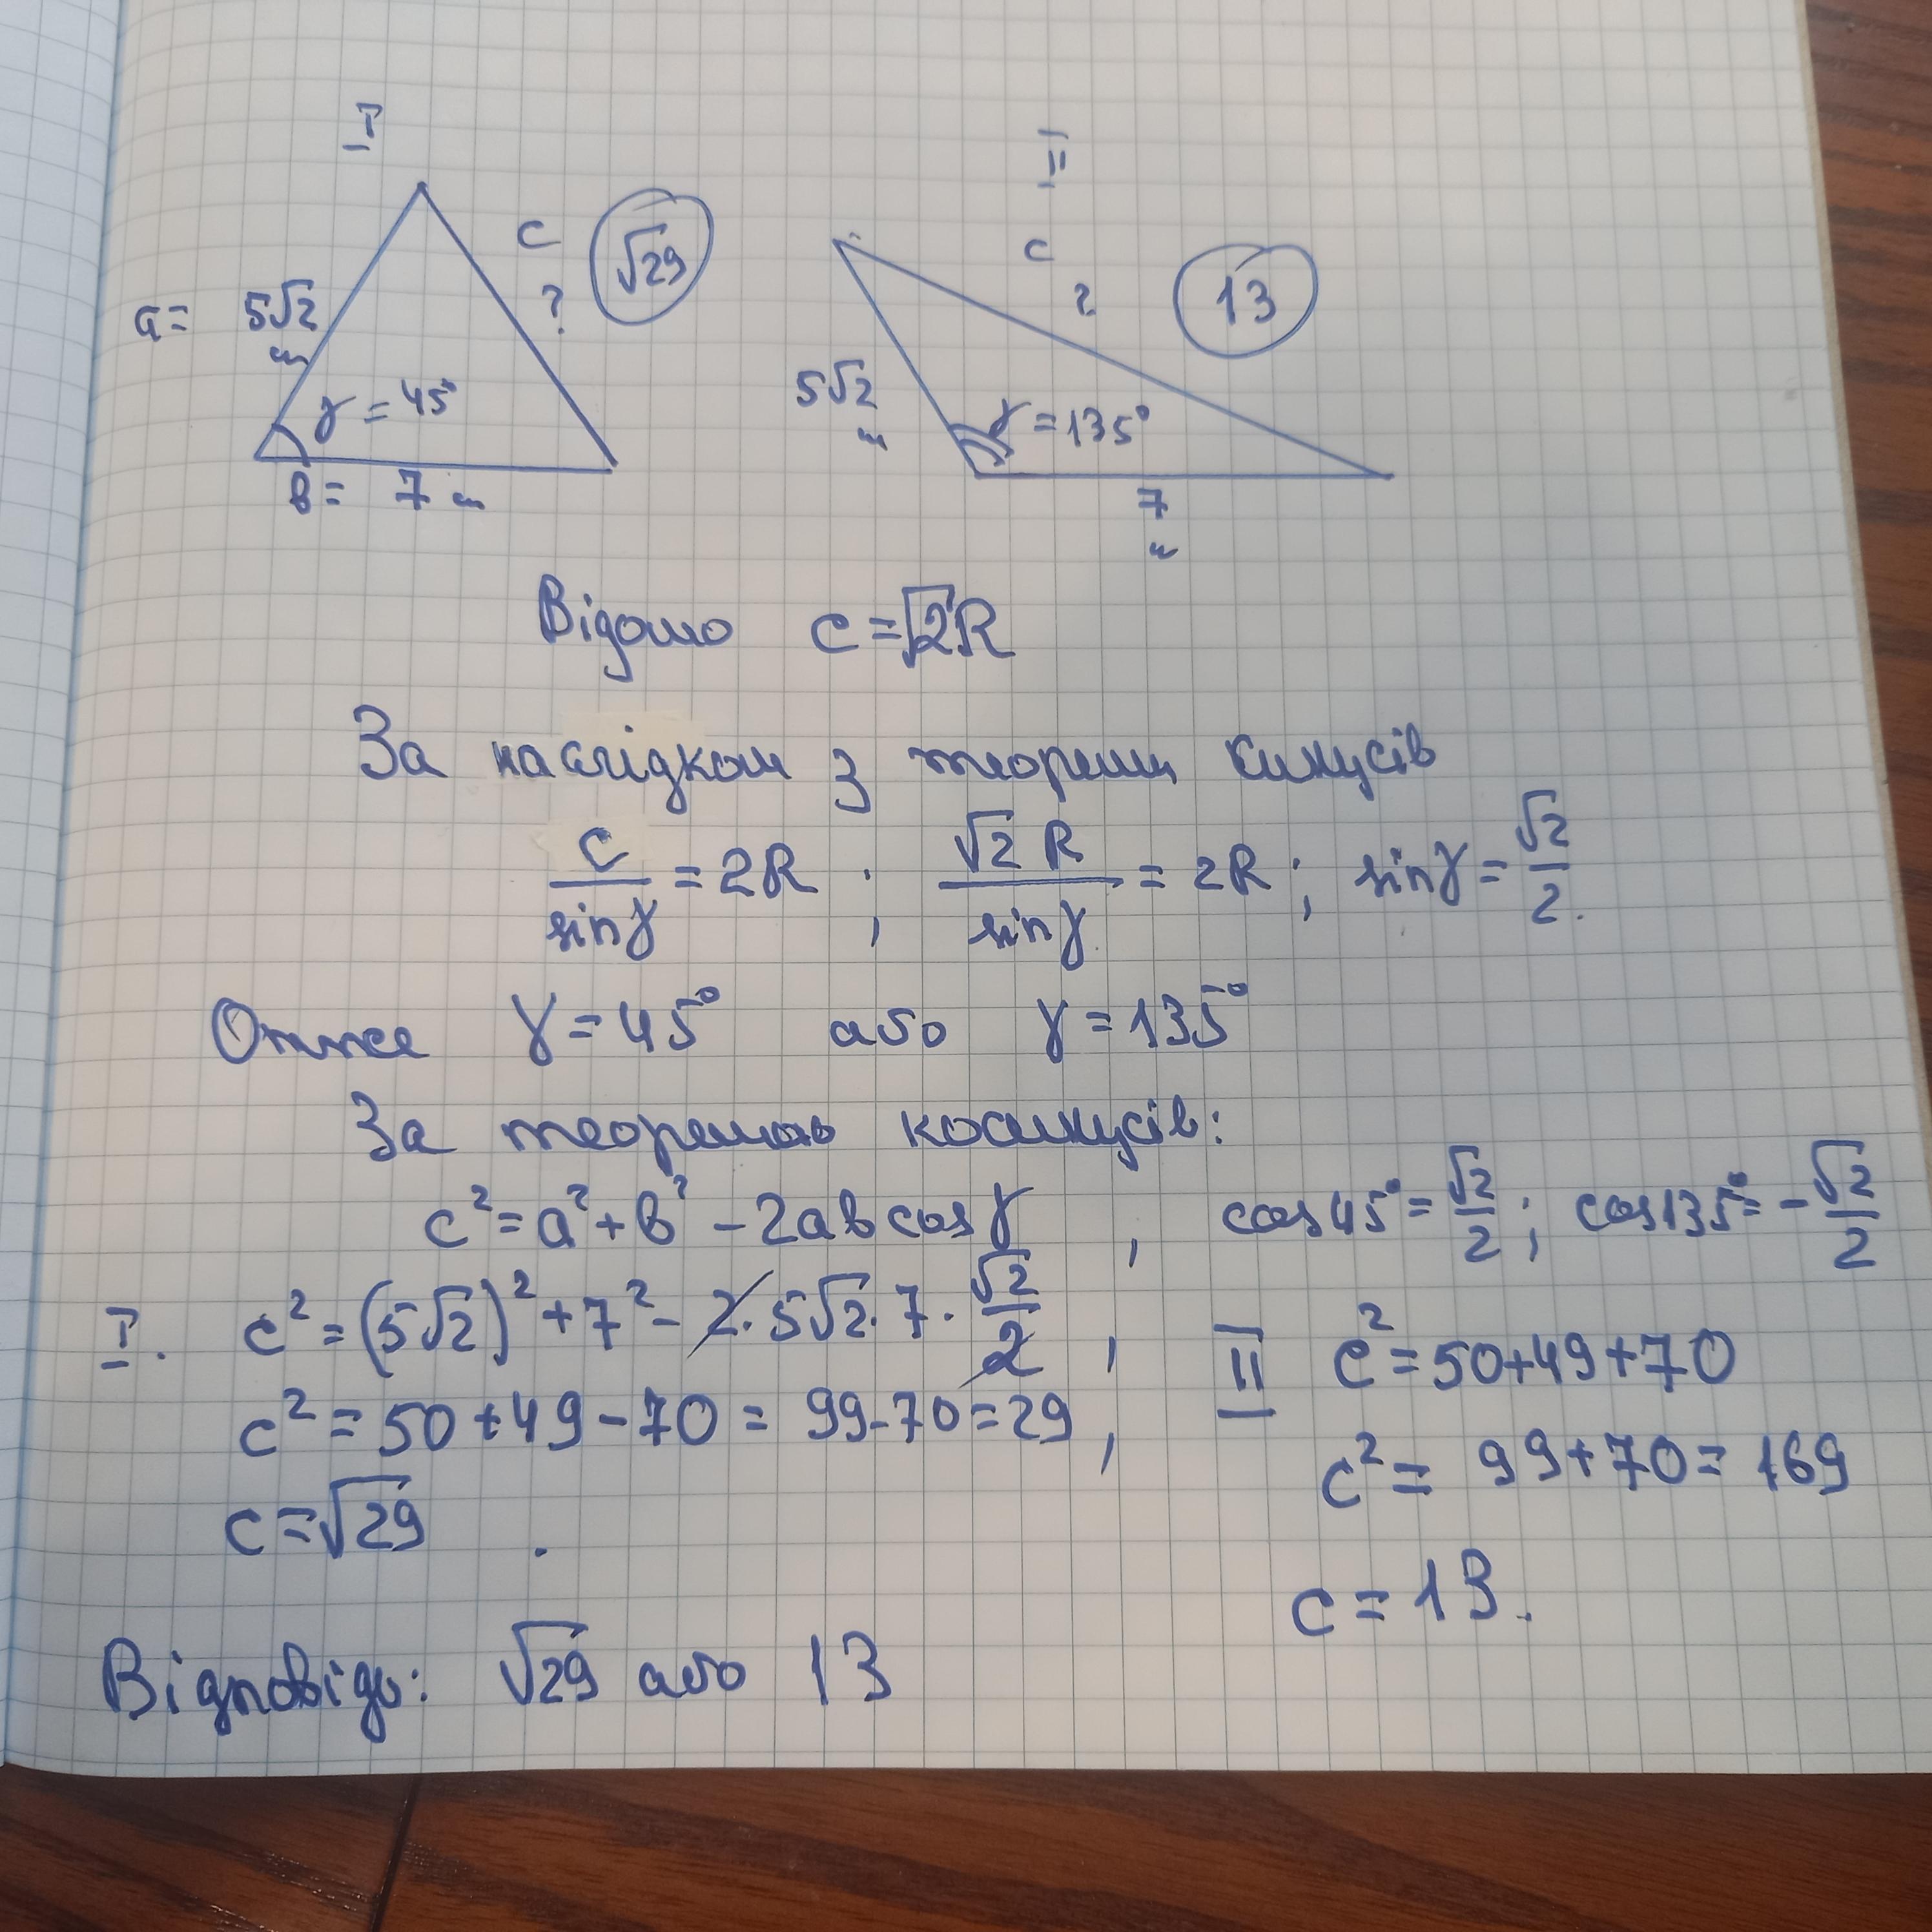 I
II
c
√29
c
13
?
?
a = 5√2
см
5√2
см
γ = 45°
γ = 135°
в = 7 см
7
см
Відомо c = √2R
За наслідком з теореми синусів
c/sinγ = 2R ; √2 R/sinγ = 2R ; sinγ = √2/2.
Отже γ = 45° або γ = 135°
За теоремою косинусів:
c² = a² + в² - 2aв cosγ , cos45° = √2/2 ; cos135° = -√2/2
I. c² = (5√2)² + 7² - 2·5√2·7·√2/2 ,
II c² = 50+49+70
c² = 50+49-70 = 99-70=29 ,
c² = 99+70= 169
c=√29 .
c = 13.
Відповідь: √29 або 13